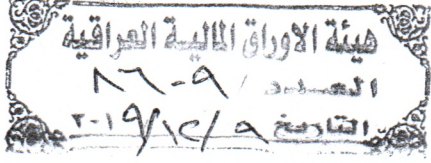 هيئة الاوراق المالية العراقية
العـــدد / ٨٦٠٩
التاريخ ٩ / ١٢ / ٢٠١٩